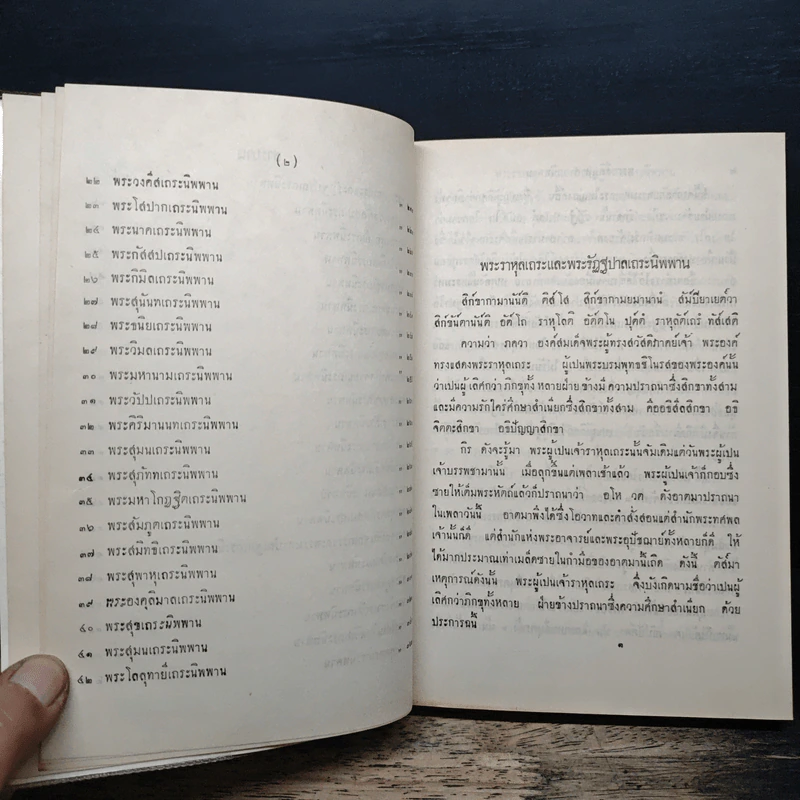 (๒)
๒๒ พระวงคีสเถระนิพพาน
๒๓ พระโสปากเถระนิพพาน
๒๔ พระนาคเถระนิพพาน
๒๕ พระกัสสปเถระนิพพาน
๒๖ พระกิมิลเถระนิพพาน
๒๗ พระสุนันทเถระนิพพาน
๒๘ พระขนิยเถระนิพพาน
๒๙ พระวิมลเถระนิพพาน
๓๐ พระมหานามเถระนิพพาน
๓๑ พระวัปปเถระนิพพาน
๓๒ พระคิริมานนทเถระนิพพาน
๓๓ พระสุมนเถระนิพพาน
๓๔ พระสุภัททเถระนิพพาน
๓๕ พระมหาโกฏฐิตเถระนิพพาน
๓๖ พระสัมภูตเถระนิพพาน
๓๗ พระสมิทธิเถระนิพพาน
๓๘ พระสุพาหุเถระนิพพาน
๓๙ พระองคุลิมาลเถระนิพพาน
๔๐ พระสุขเถระนิพพาน
๔๑ พระสุมนเถระนิพพาน
๔๒ พระโลลุทายีเถระนิพพาน
พระราหุลเถระและพระรัฏฐปาลเถระนิพพาน
สิกขากามานันติ ติสโส สิกขากามยมานานํ สัมปิยาเยตวา
สิกขันตานันติ อัตโถ ราหุโลติ อัตตโน ปุตตํ ราหุลัตเถรํ ทัสเสติ
ความว่า ภควา องค์สมเด็จพระผู้ทรงสวัสดิภาคย์เจ้า พระองค์
ทรงแสดงพระราหุลเถระ ผู้เป็นพระบรมพุทธชิโนรสของพระองค์นั้น
ว่าเป็นผู้เลิศกว่าภิกขุทั้งหลายฝ่ายข้างมีความปราถนาซึ่งสิกขาทั้งสาม
และมีความรักใคร่ศึกษาสำเนียกซึ่งสิกขาทั้งสาม คืออธิสีลสิกขา อธิ
จิตตะสิกขา อธิปัญญาสิกขา
กิร ดังจะรู้มา พระผู้เปนเจ้าราหุลเถระนั้นจำเดิมแต่วันพระผู้เปน
เจ้าบรรพชามานั้น เมื่อลุกขึ้นแต่เพลาเช้าแล้ว พระผู้เปนเจ้าก็กอบซึ่ง
ซายให้เต็มพระหัตถ์แล้วก็ปราถนาว่า อโห วต ดังอาตมาปราถนา
ในเพลาวันนี้ อาตมาพึงได้ซึ่งโอวาทและคำสั่งสอนแต่สำนักพระทศพล
เจ้านั้นก็ดี แต่สำนักแห่งพระอาจารยและพระอุปัชฌาย์ทั้งหลายก็ดี ให้
ได้มากประมาณเท่าเมล็ดซายในกำมือของอาตมานี้เถิด ดังนี้ ตัสมา
เหตุการณ์ดังนั้น พระผู้เปนเจ้าราหุลเถระ จึ่งบังเกิดนามชื่อว่าเปนผู้
เลิศกว่าภิกขุทั้งหลาย ฝ่ายข้างปราถนาซึ่งความศึกษาสำเนียก ด้วย
ประการฉนี้
๑